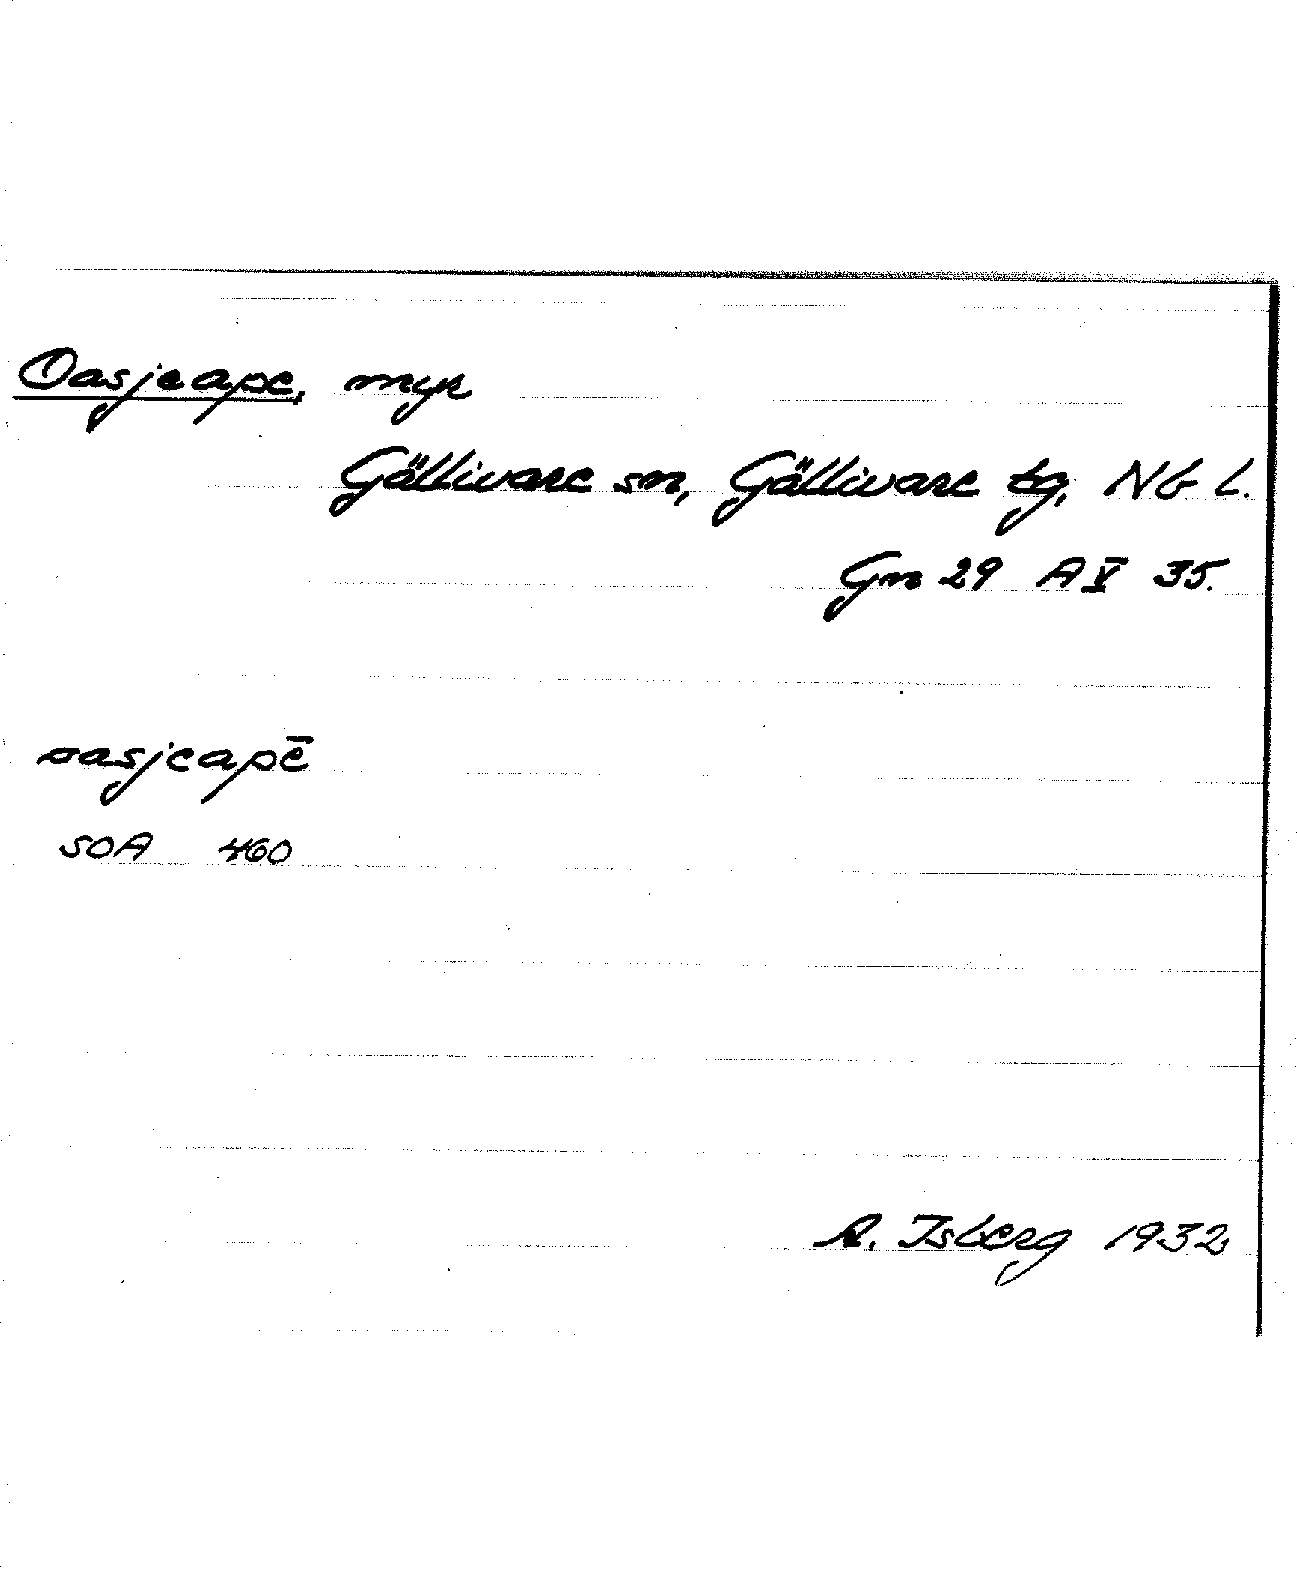 Oasjeape, myr
Gällivare sn, Gällivare tg, Nb l.
Gn 29 A V 35.
oasjeapē
SOA 460
A. Isberg 1932